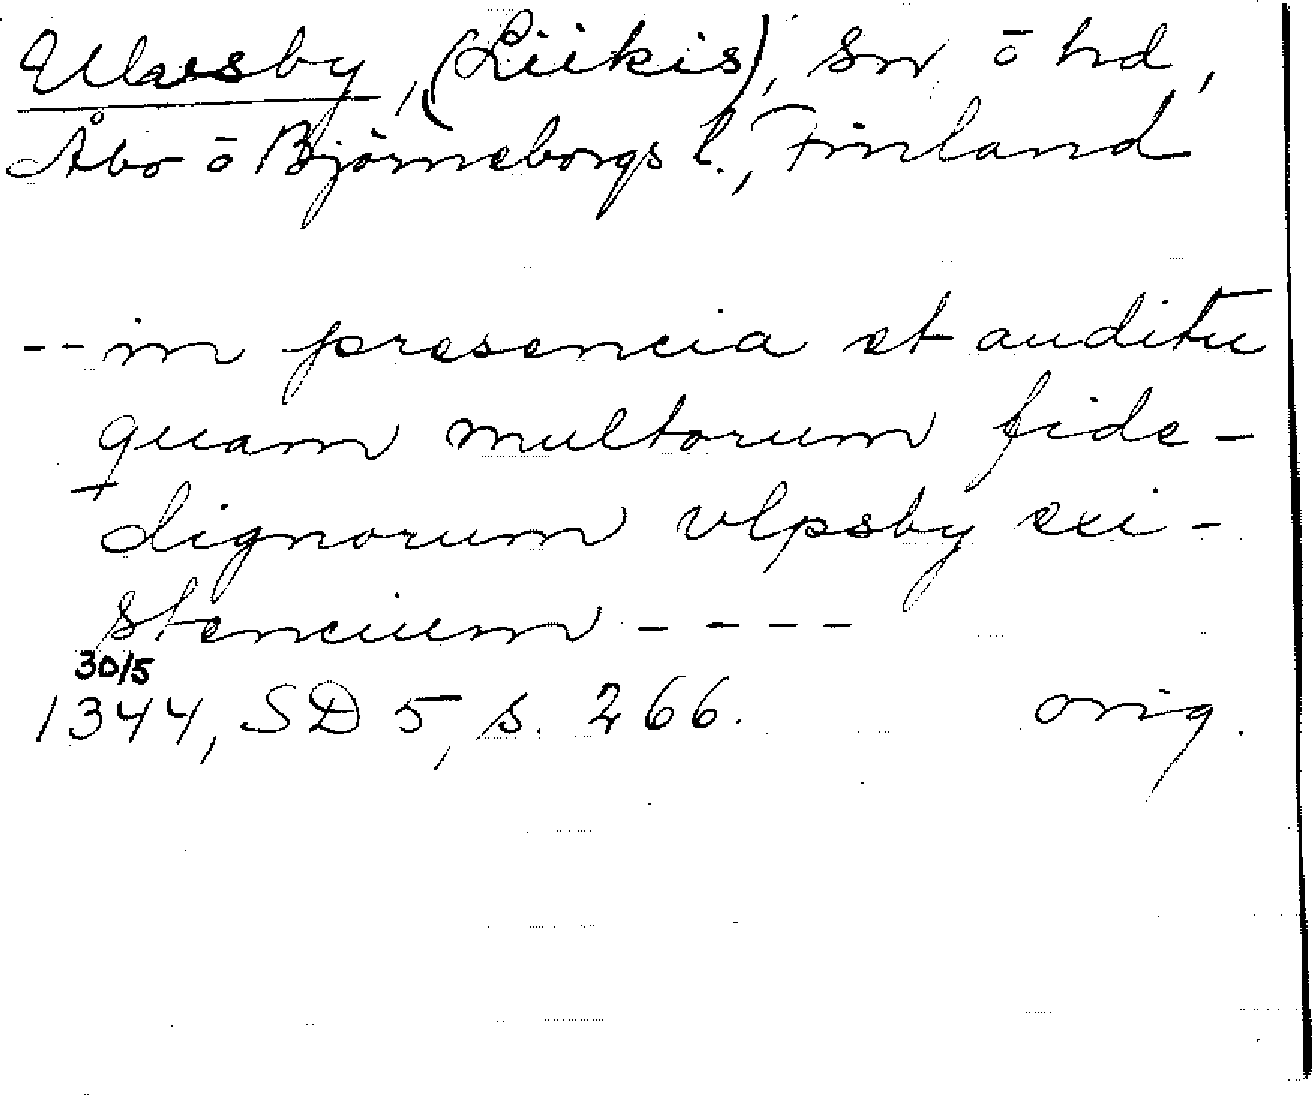 Ulvsby, (Liikis), Sn ō hd,
Åbo ō Björneborgs l., Finland
-- in presencia et auditu
quam multorum fide-
dignorum vlpsby exi-
stencium ----
30/5
1344, SD 5, s. 266. orig.